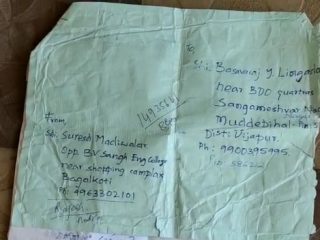 To,
Shri: Basavaraj Y. Lingaria
near BDO quarters
Sangameshwar Nagar
Muddebihal
Dist: Vijapur.
Ph: 9900395995
Pin 58621
From,
Shri Suresh Madiwalar
Opp. B.V. Sangh Eng College
near shopping complax
Bagalkoti
Ph: 9963302101